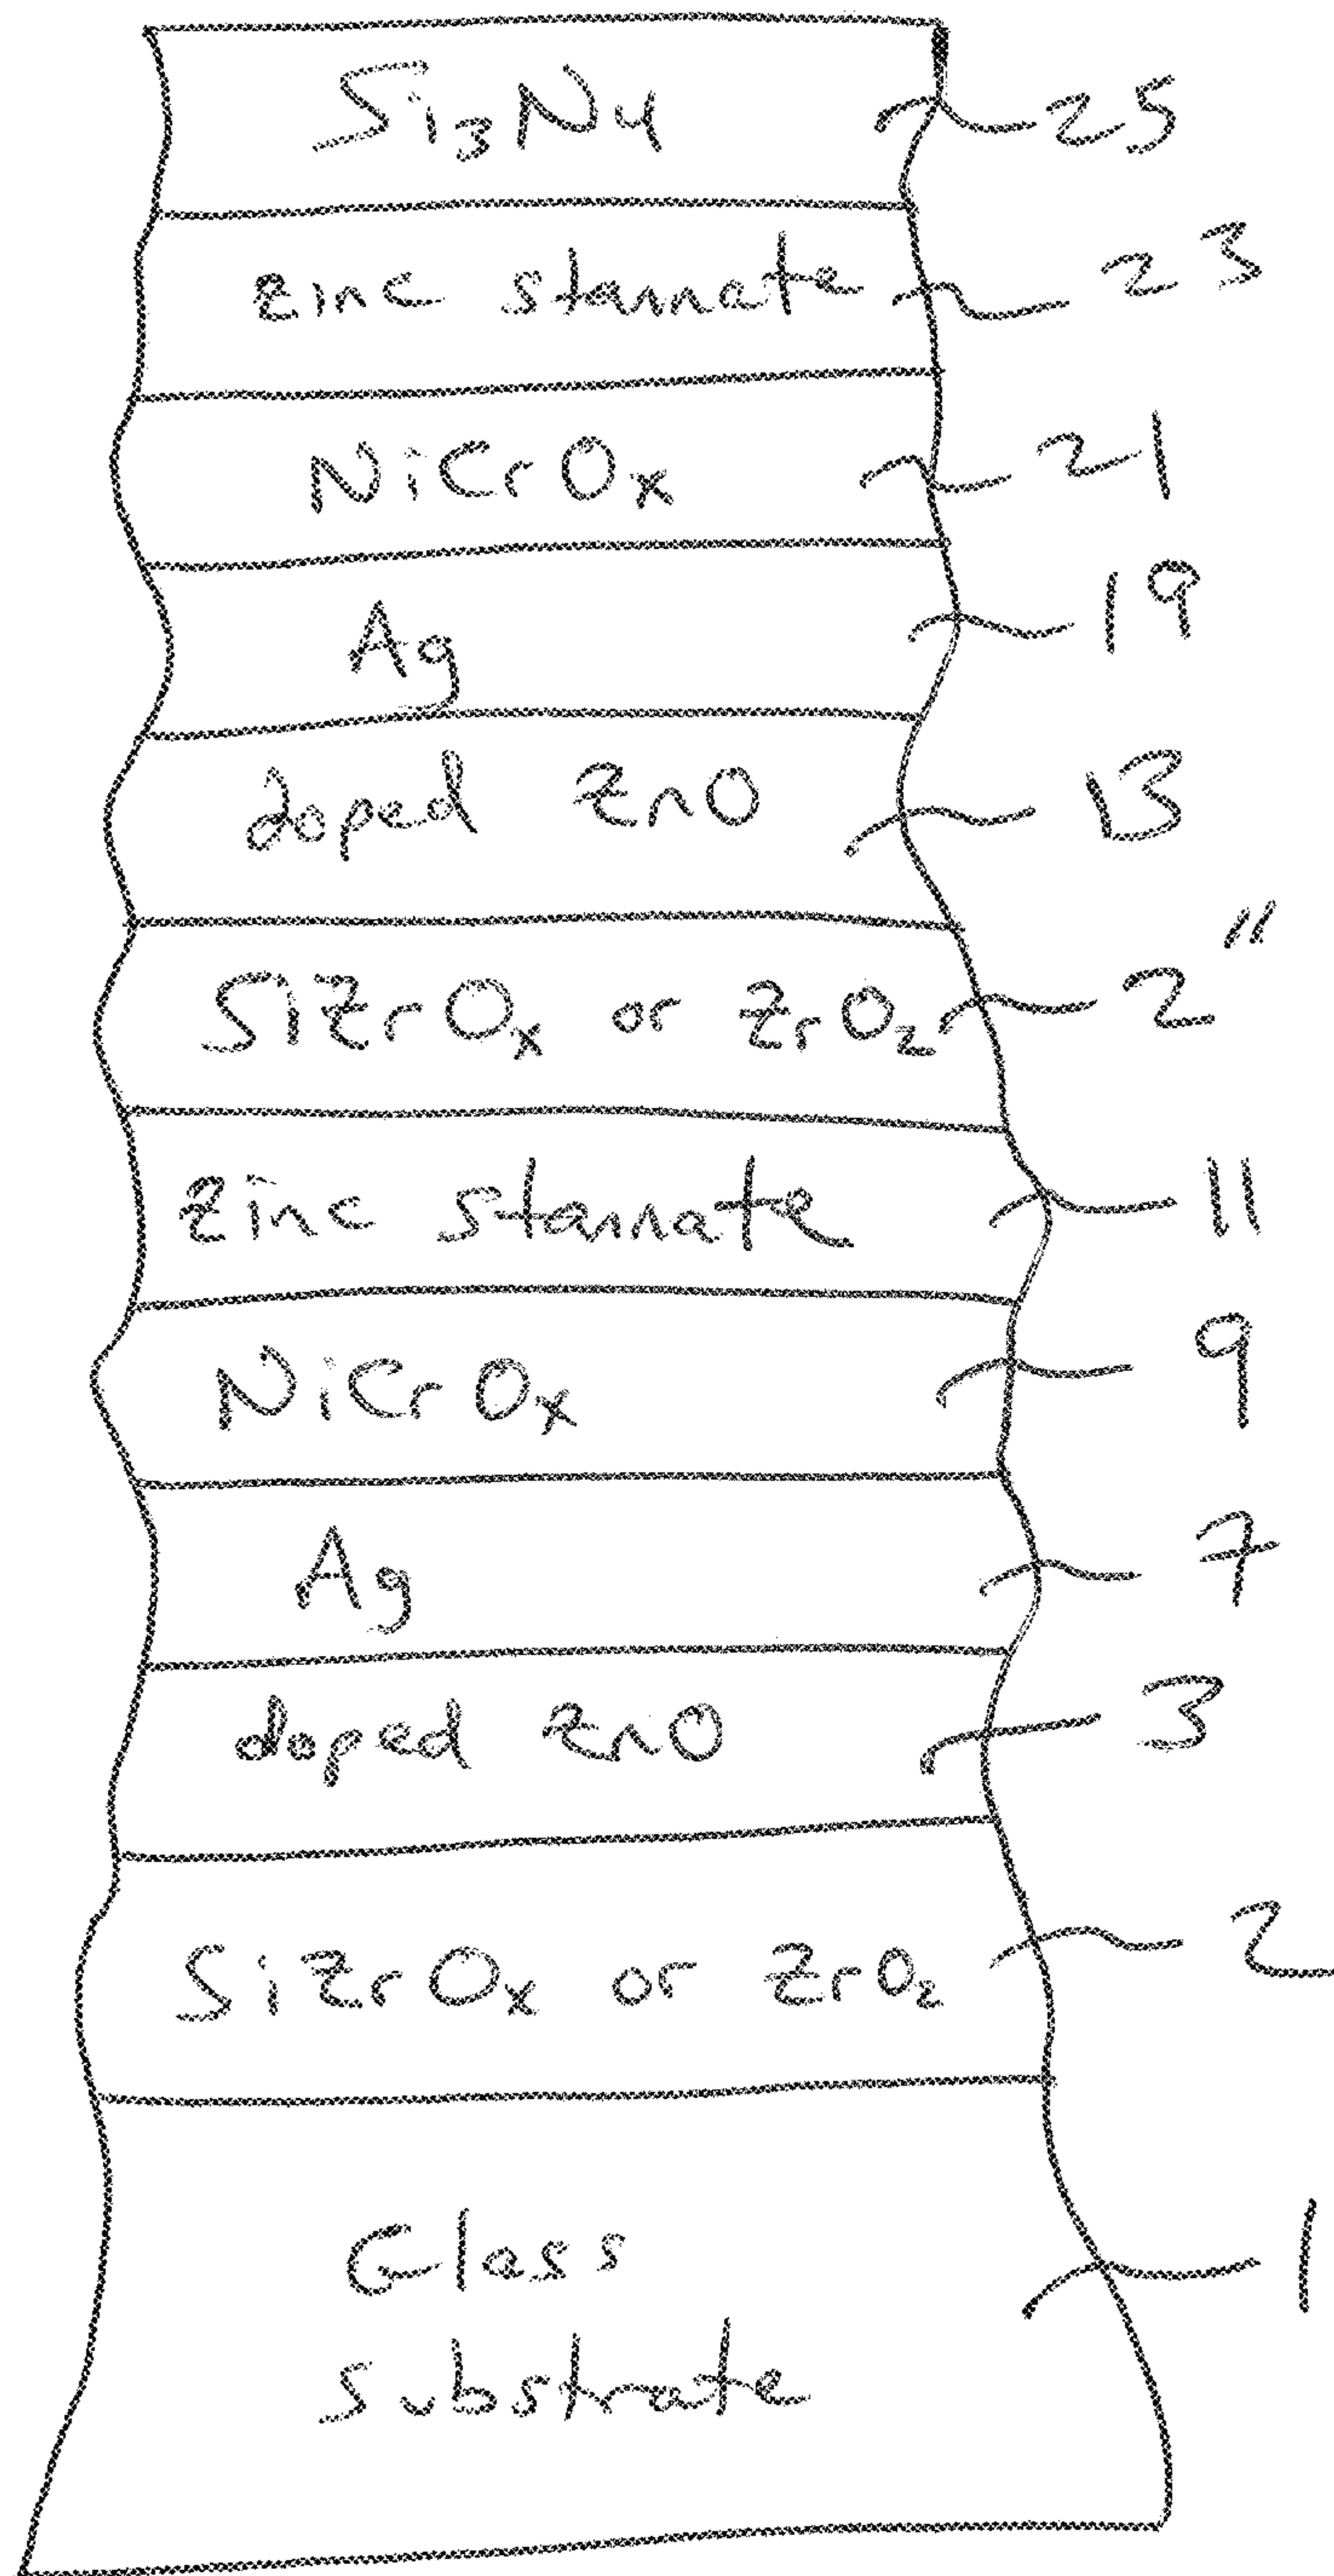 Si3N4 25
zinc stannate 23
NiCrOx 21
Ag 19
doped ZnO 13
SiZrOx or ZrO2 2"
zinc stannate 11
NiCrOx 9
Ag 7
doped ZnO 3
SiZrOx or ZrO2 2
Glass 1
substrate